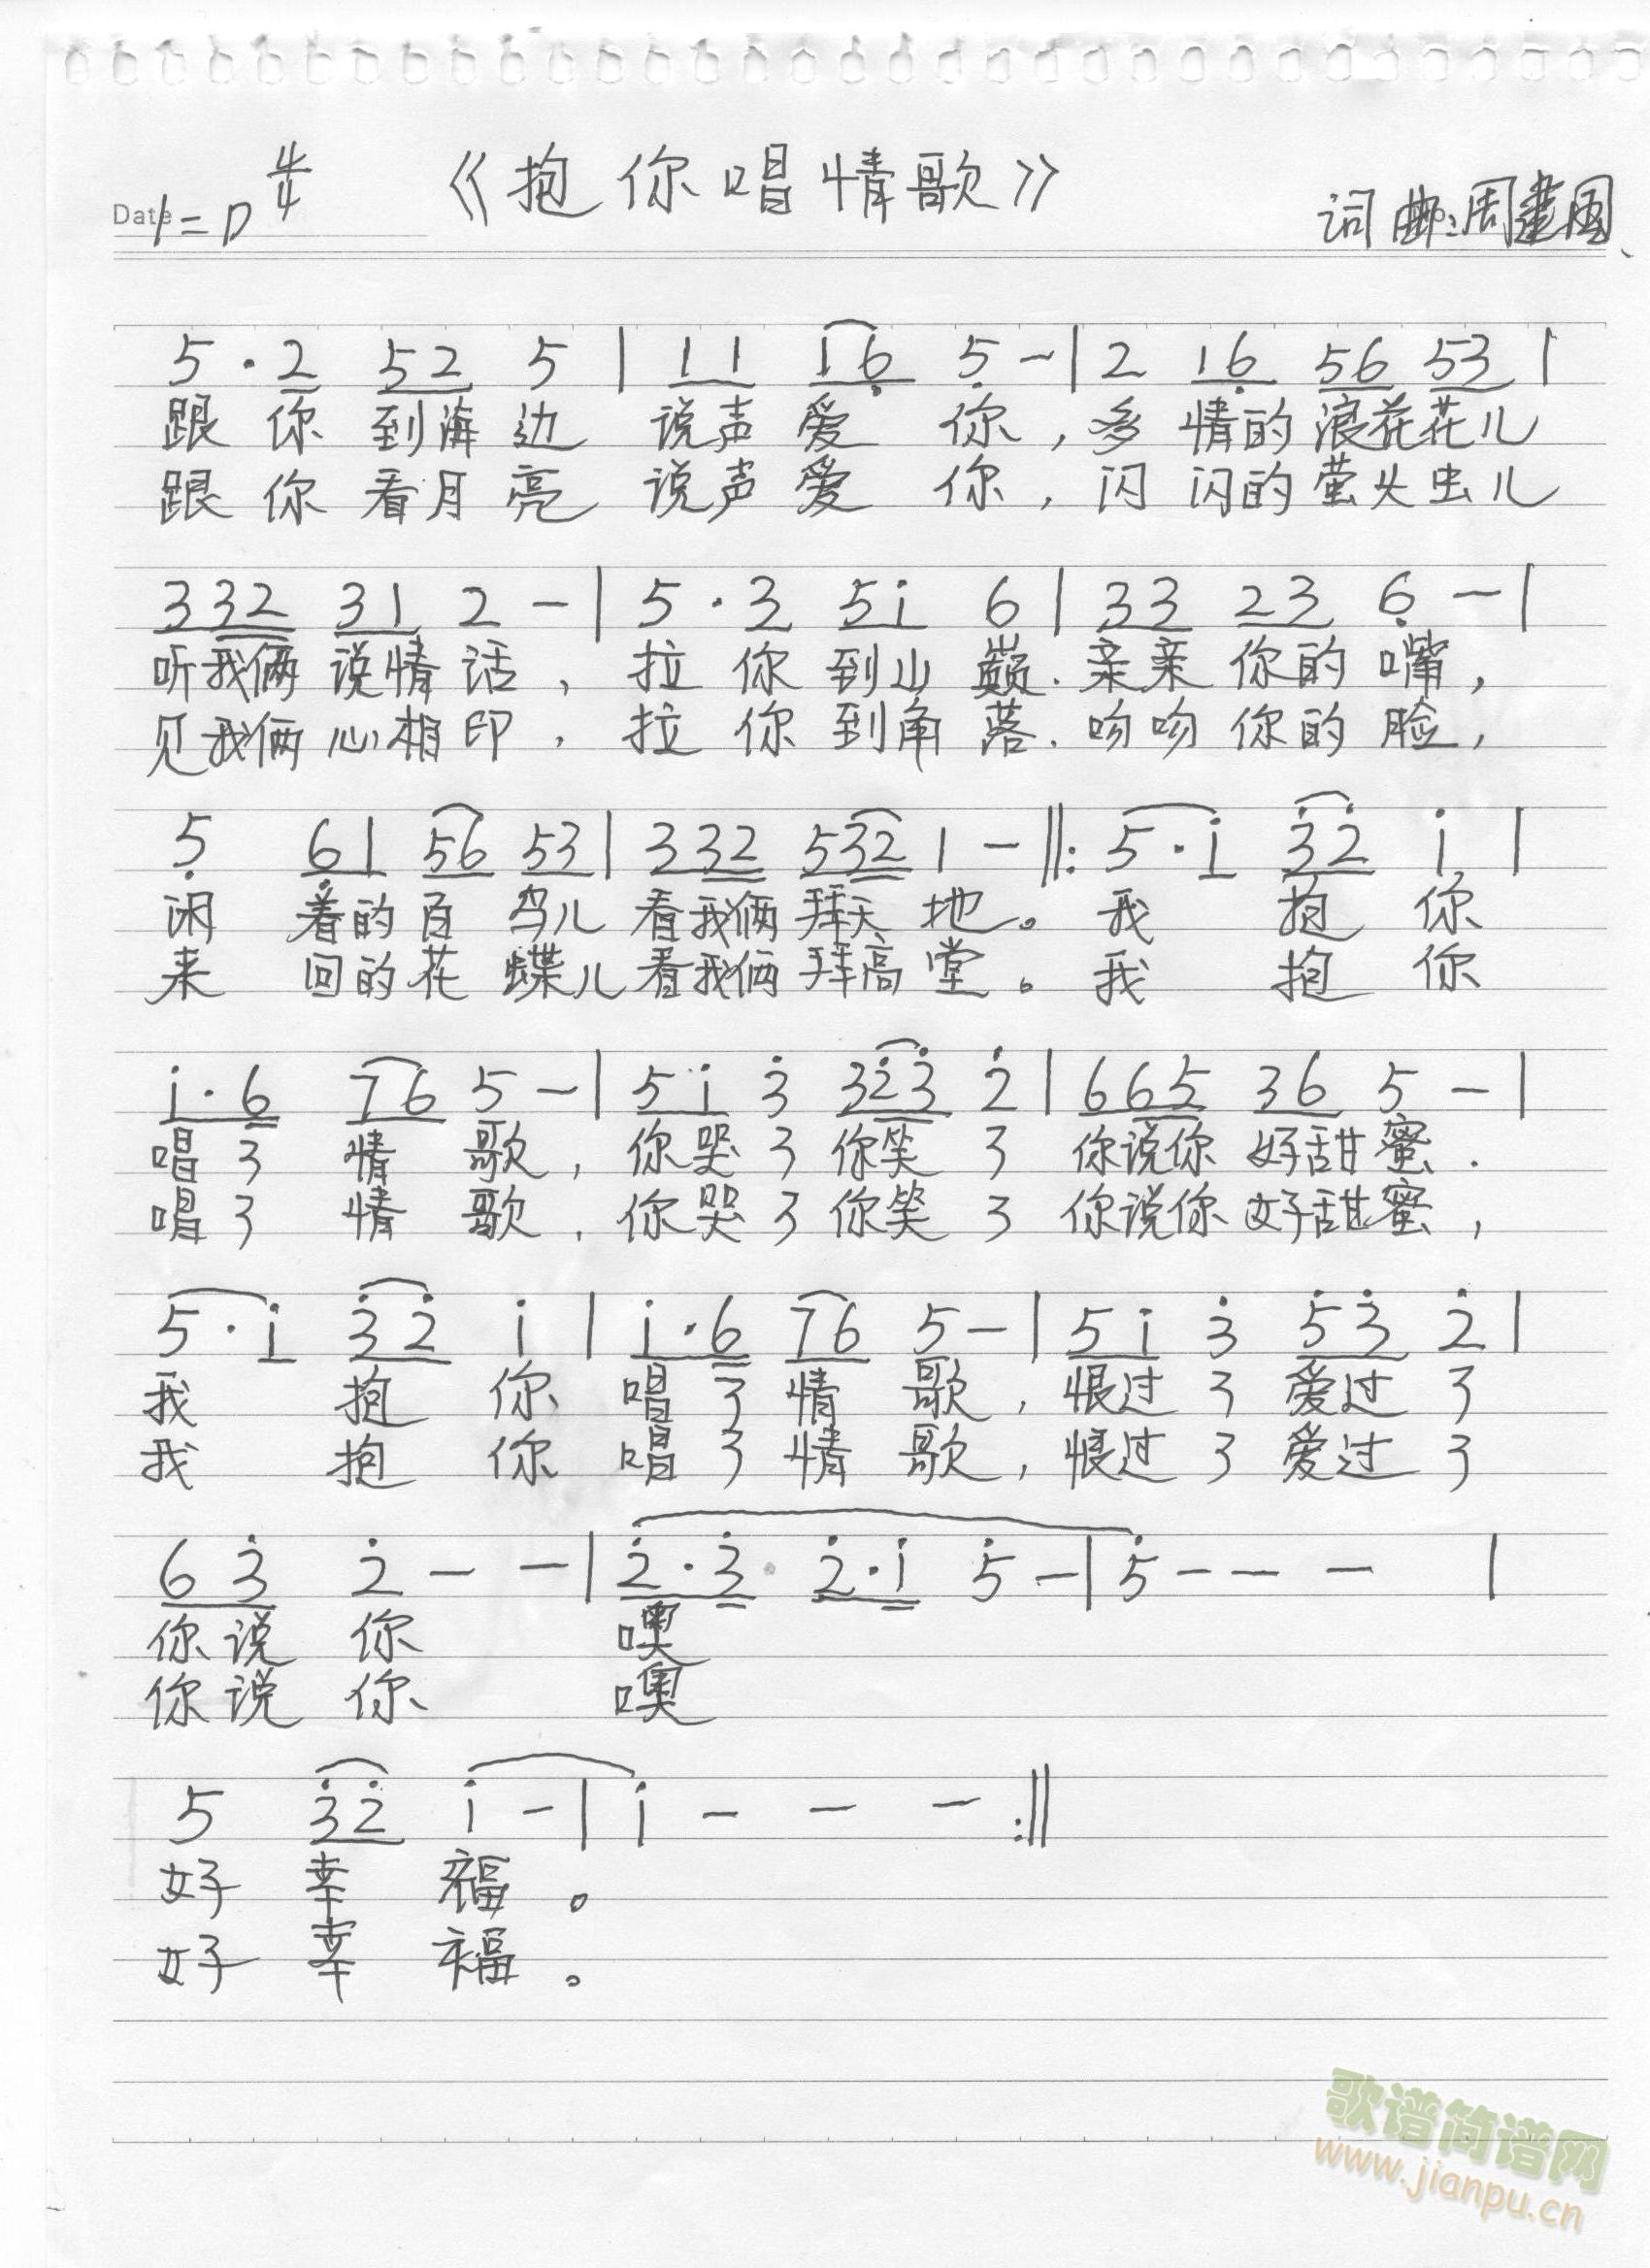 《抱你唱情歌》
Date 1=D 4/4
词曲:周建国
5·2 52 5 | 11 16 5 - | 2 16 56 53 |
跟你到海边 说声爱你,多情的浪花花儿
跟你看月亮 说声爱你,闪闪的萤火虫儿
332 31 2 - | 5·3 5i 6 | 33 23 6 - |
听我俩说情话,拉你到山巅.亲亲你的嘴,
见我俩心相印,拉你到角落.吻吻你的脸,
5 61 56 53 | 332 532 1 - ‖: 5·i 32 i |
闲着的百鸟儿看我俩拜天地。我抱你
来回的花蝶儿看我俩拜高堂。我抱你
i·6 76 5 - | 5i 3 323 2 | 665 36 5 - |
唱了情歌,你哭了你笑了 你说你好甜蜜.
唱了情歌,你哭了你笑了 你说你好甜蜜,
5·i 32 i | i·6 76 5 - | 5i 3 53 2 |
我抱你唱了情歌,恨过了爱过了
我抱你唱了情歌,恨过了爱过了
63 2 - - | 2·3 2·i 5 - | 5 - - - |
你说你 噢
你说你 噢
5 32 i - | i - - - :‖
好幸福。
好幸福。
歌谱简谱网
www.jianpu.cn